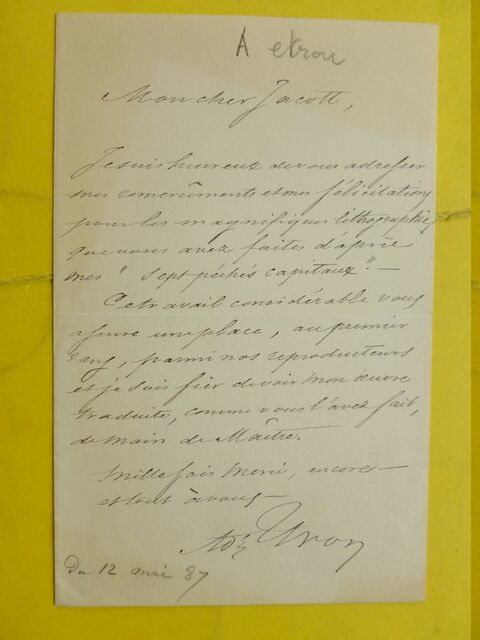 A etron
Mon cher Jacott,
Je suis heureux de vous adresser
mes remercîments et mes félicitations
pour les magnifiques lithographies
que vous avez faites d'après
mes " sept péchés capitaux". —
Ce travail considérable vous
assure une place, au premier
rang, parmi nos reproducteurs
et je suis fier de voir mon œuvre
traduite, comme vous l'avez fait,
de main de Maître.
Mille fois merci, encore —
et tout à vous —
Ad. Yvon
Du 12 mai 87